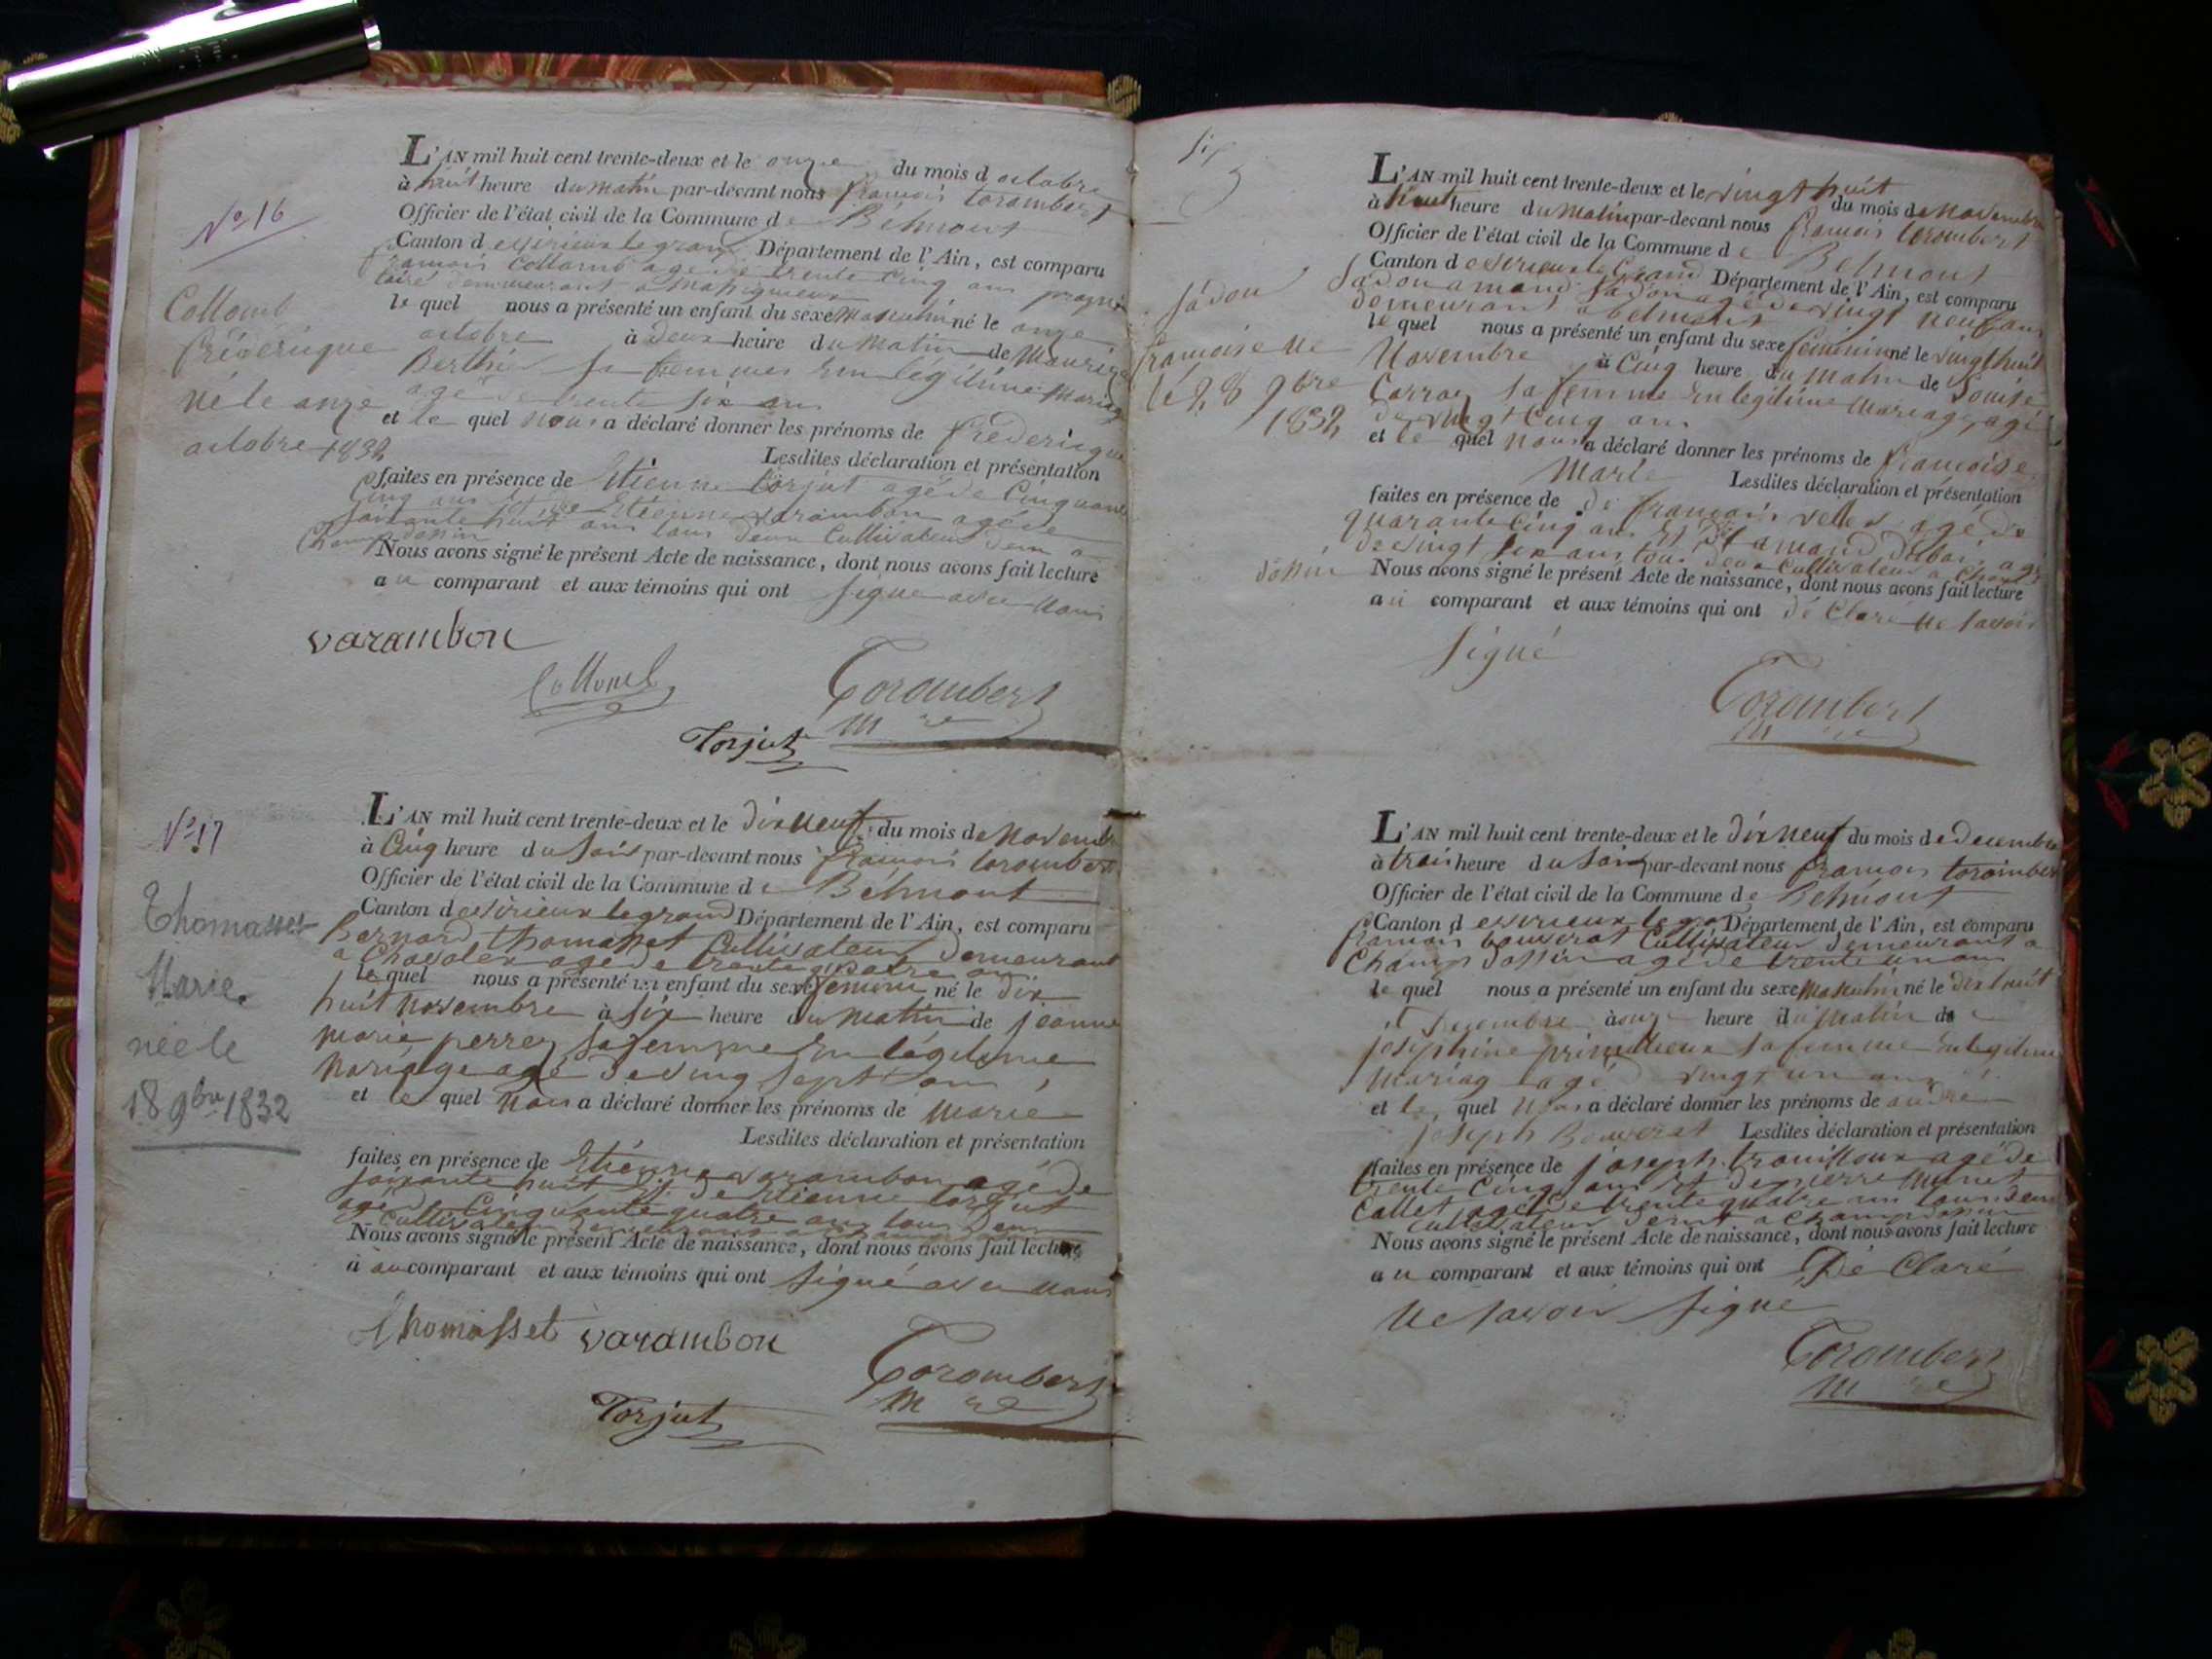 No 16
Collomb
fréderique
né le onze
octobre 1832
L'AN mil huit cent trente-deux et le onze du mois d octobre
à huit heure du matin par-devant nous françois torombert
Officier de l'état civil de la Commune de Belmont
Canton d evirieux le grand Département de l'Ain, est comparu
françois Collomb agé de trente cinq ans proprié
taire demeurant a
le quel nous a présenté un enfant du sexe masculin né le onze
octobre à deux heure du matin de
Berthier sa femme en legitime mariage
agé de trente six ans
et le quel nous a déclaré donner les prénoms de frederique
Lesdites déclaration et présentation
faites en présence de Etienne torjut agé de Cinquante
Cinq ans et de Etienne varambon agé de
soixante huit ans tous deux Cultivateur dem a
Champdossin
Nous avons signé le présent Acte de naissance, dont nous avons fait lecture
au comparant et aux témoins qui ont signé avec nous
varambon
Collomb
Torombert
mre
Torjut
No 17
Thomasset
Marie
née le
18 9bre 1832
L'AN mil huit cent trente-deux et le dix neuf du mois de Novembre
à Cinq heure du soir par-devant nous françois torombert
Officier de l'état civil de la Commune de Belmont
Canton d evirieux le grand Département de l'Ain, est comparu
Bernard thomasset Cultivateur demeurant
a agé de trente quatre ans
le quel nous a présenté un enfant du sexe feminin né le dix
huit novembre à six heure du matin de jeanne
marie perret sa femme en légitime
mariage agé de ving sept ans
et le quel nous a déclaré donner les prénoms de marie
Lesdites déclaration et présentation
faites en présence de Etienne varambon agé de
soixante huit et de Etienne torjut
agé de Cinquante quatre ans tous deux
Cultivateur demeurant
Nous avons signé le présent Acte de naissance, dont nous avons fait lecture
à au comparant et aux témoins qui ont signé avec nous
Thomasset varambon
Torombert
mre
Torjut
Sadon
françoise né
le 28 9bre
1832
L'AN mil huit cent trente-deux et le vingt huit du mois de Novembre
à huit heure du Matin par-devant nous françois torombert
Officier de l'état civil de la Commune de Belmont
Canton d evirieux le Grand Département de l'Ain, est comparu
Sadon amand Sadon agé de vingt neuf ans
demeurant a belmont
le quel nous a présenté un enfant du sexe féminin né le vingt huit
Novembre à Cinq heure du matin de Louise
Carraz sa femme en legitime mariage, agé
de vingt Cinq ans
et le quel nous a déclaré donner les prénoms de françoise
Marie Lesdites déclaration et présentation
faites en présence de de françois vellet agé de
quarante cinq ans et de amand agé
de vingt six ans tous deux Cultivateur a Champ
dossin Nous avons signé le présent Acte de naissance, dont nous avons fait lecture
au comparant et aux témoins qui ont dé Claré ne savoir
signé
Torombert
mre
L'AN mil huit cent trente-deux et le dix neuf du mois de decembre
à trois heure du soir par-devant nous françois torombert
Officier de l'état civil de la Commune de Belmont
Canton d evirieux le gra Département de l'Ain, est comparu
françois bouverat Cultivateur demeurant a
Champ dossin agé de trente un ans
le quel nous a présenté un enfant du sexe masculin né le dix huit
Decembre à onze heure du matin de
josephine sa femme en legitime
mariag agé vingt un ans
et le quel nous a déclaré donner les prénoms de andré
joseph Bouverat Lesdites déclaration et présentation
faites en présence de joseph trouilloux agé de
trente Cinq ans et de pierre
Callet agé de trente quatre ans tous deux
Cultivateur demt a Champdossin
Nous avons signé le présent Acte de naissance, dont nous avons fait lecture
au comparant et aux témoins qui ont Dé Claré
ne savoir signe
Torombert
mre